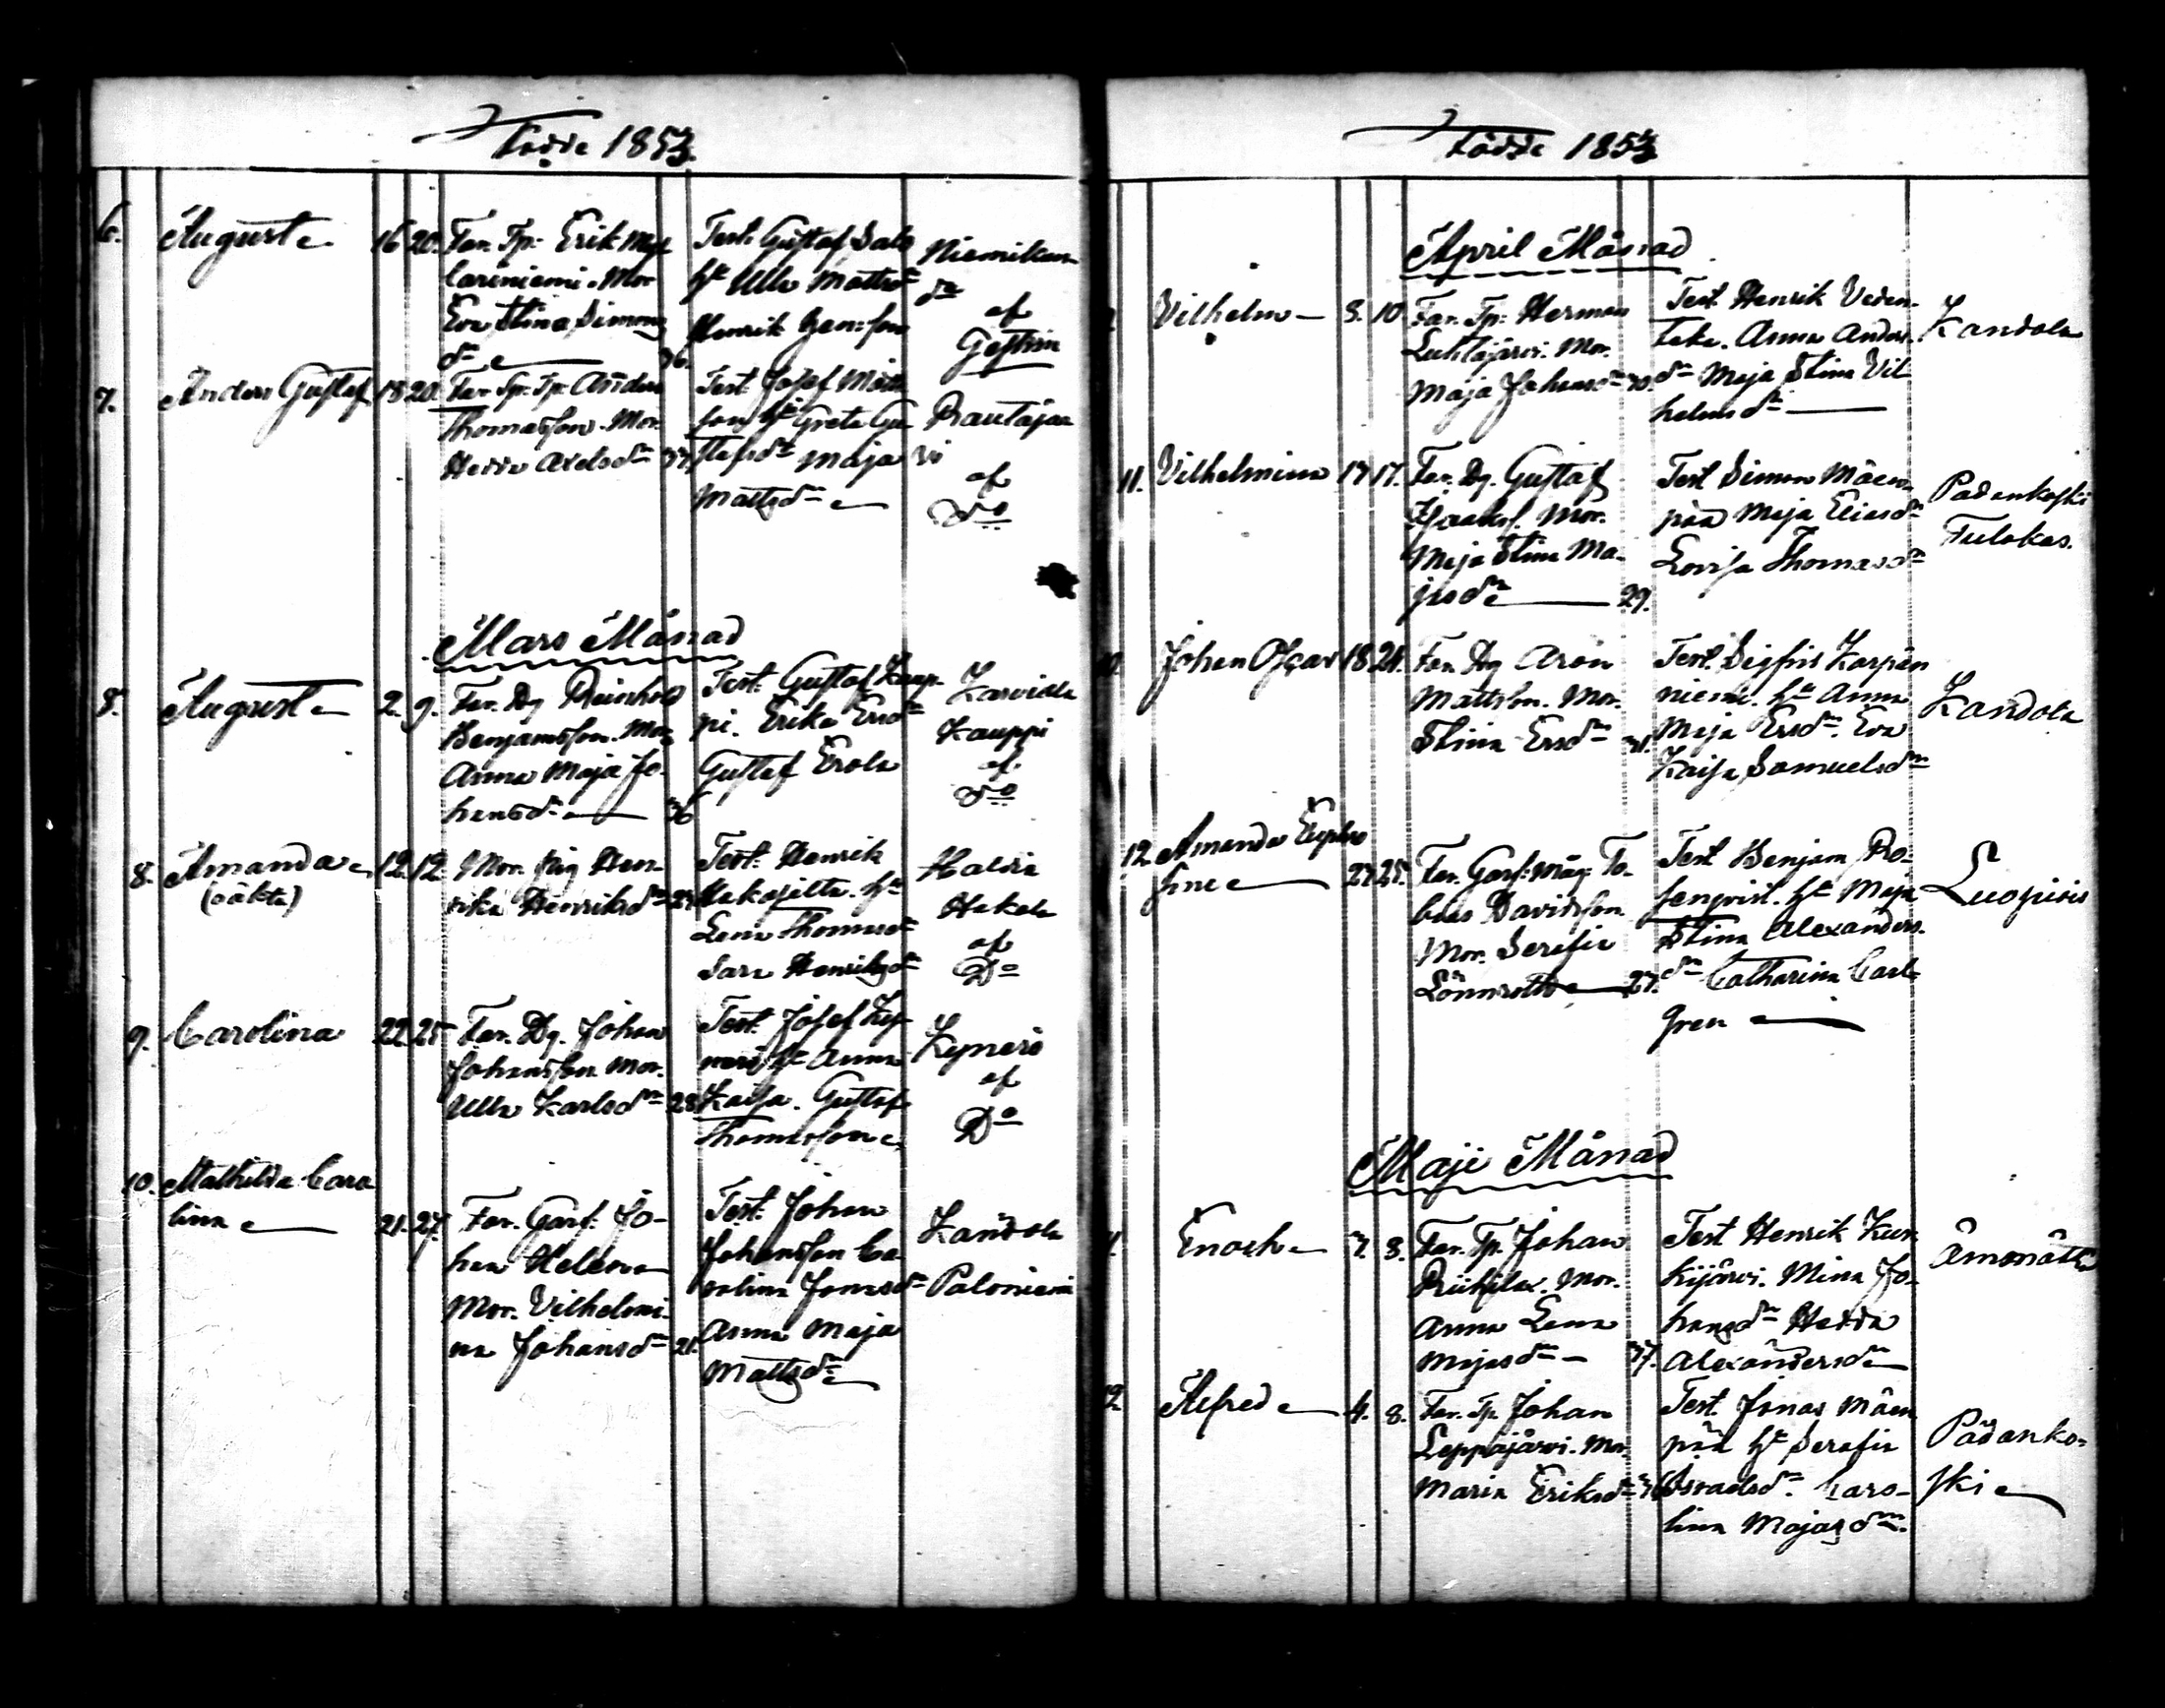 Födde 1853.
6. August 16 20. Far. Tp. Erik
lariniemi. Mor
Eva Stina Simons
dr 36.
Test. Gustaf Salo
hu Ulla Mattsdr
Henrik
Niemikun
da
af
Gestrin
7. Anders Gustaf 18 20. Far. Sp. Tp. Anders
Thomasson. Mor.
Hedda Axelsdr 37.
Test. Josef Matts
son hu Greta Gu-
stafsdr Maja
Mattsdr
Rautajär
vi
af
Do
Mars Månad
8. August 2. 9. Far. Dg Reinhold
Benjamsson. Mor
Anna Maja Jo-
hansdr 36
Test. Gustaf Kaup-
pi. Erika Ersdr
Gustaf Erola
Karviala
Kauppi
af
Do
8. Amanda 12. 12. Mor. pig Hen-
rika Henriksdr
(oäkta)
Test. Henrik
hu
Lena Thomasdr
Sara Henriksdr
Haltia
Hakala
af
Do
9. Carolina 22 25 Far. Dg. Johan
Johansson Mor.
Ulla Karlsdr 28
Test. Josef
hu Anna
Kaisa. Gustaf
Thomasson
af
Do
10. Mathilda Caro
lina 21. 27. Far. Garf. Jo-
han Helenius
Mor. Vilhelmi-
na Johansdr 21.
Test. Johan
Johansson Ca
rolina Jonasdr
Anna Maja
Mattsdr
Kandola
Paloniemi
Födde 1853
April Månad
Vilhelm 3. 10 Far. Tp. Herman
Luhtajärvi. Mor.
Maja Johansdr 30.
Test. Henrik Veden-
taka. Anna Anders
dr Maja Stina Vil
helmsdr
Kandola
11. Vilhelmina 17 17. Far. Dg. Gustaf
Isaaksf. Mor.
Maja Stina Ma-
jasdr 29.
Test Simon Mäen-
pää Maja Eliasdr
Lovisa Thomasdr
Padankoski
Tulokas.
Johan Oscar 18 24. Far. Dg Aron
Mattsson. Mor.
Stina Ersdr 31.
Test. Sigfrid Karpän
niemi. hu Anna
Maja Ersdr. Eva
Kaisa Samuelsdr
Kandola
12 Amanda Euphro
sine 23. 25. Far. Garf. Mäg. To-
bias Davidsson
Mor. Serafia
Lönnroth 27.
Test Benjam Ro-
senqvist. hu Maja
Stina Alexanders-
dr Catharina Carl-
gren
Luopiois
Maji Månad
Enoch 7. 8. Far. Tp. Johan
Riihilax. Mor.
Anna Lena
Majasdr 37.
Test Henrik Kuu
kijärvi. Mina Jo-
hansdr Hedda
Alexandersdr
Ämmätsä
12 Alfred 4. 8. Far. Tp. Johan
Leppäjärvi. Mor
Maria Eriksdr
Test Jonas Mäen
pää hu Serafia
Caro-
lina Majasdr.
Padanko-
ski